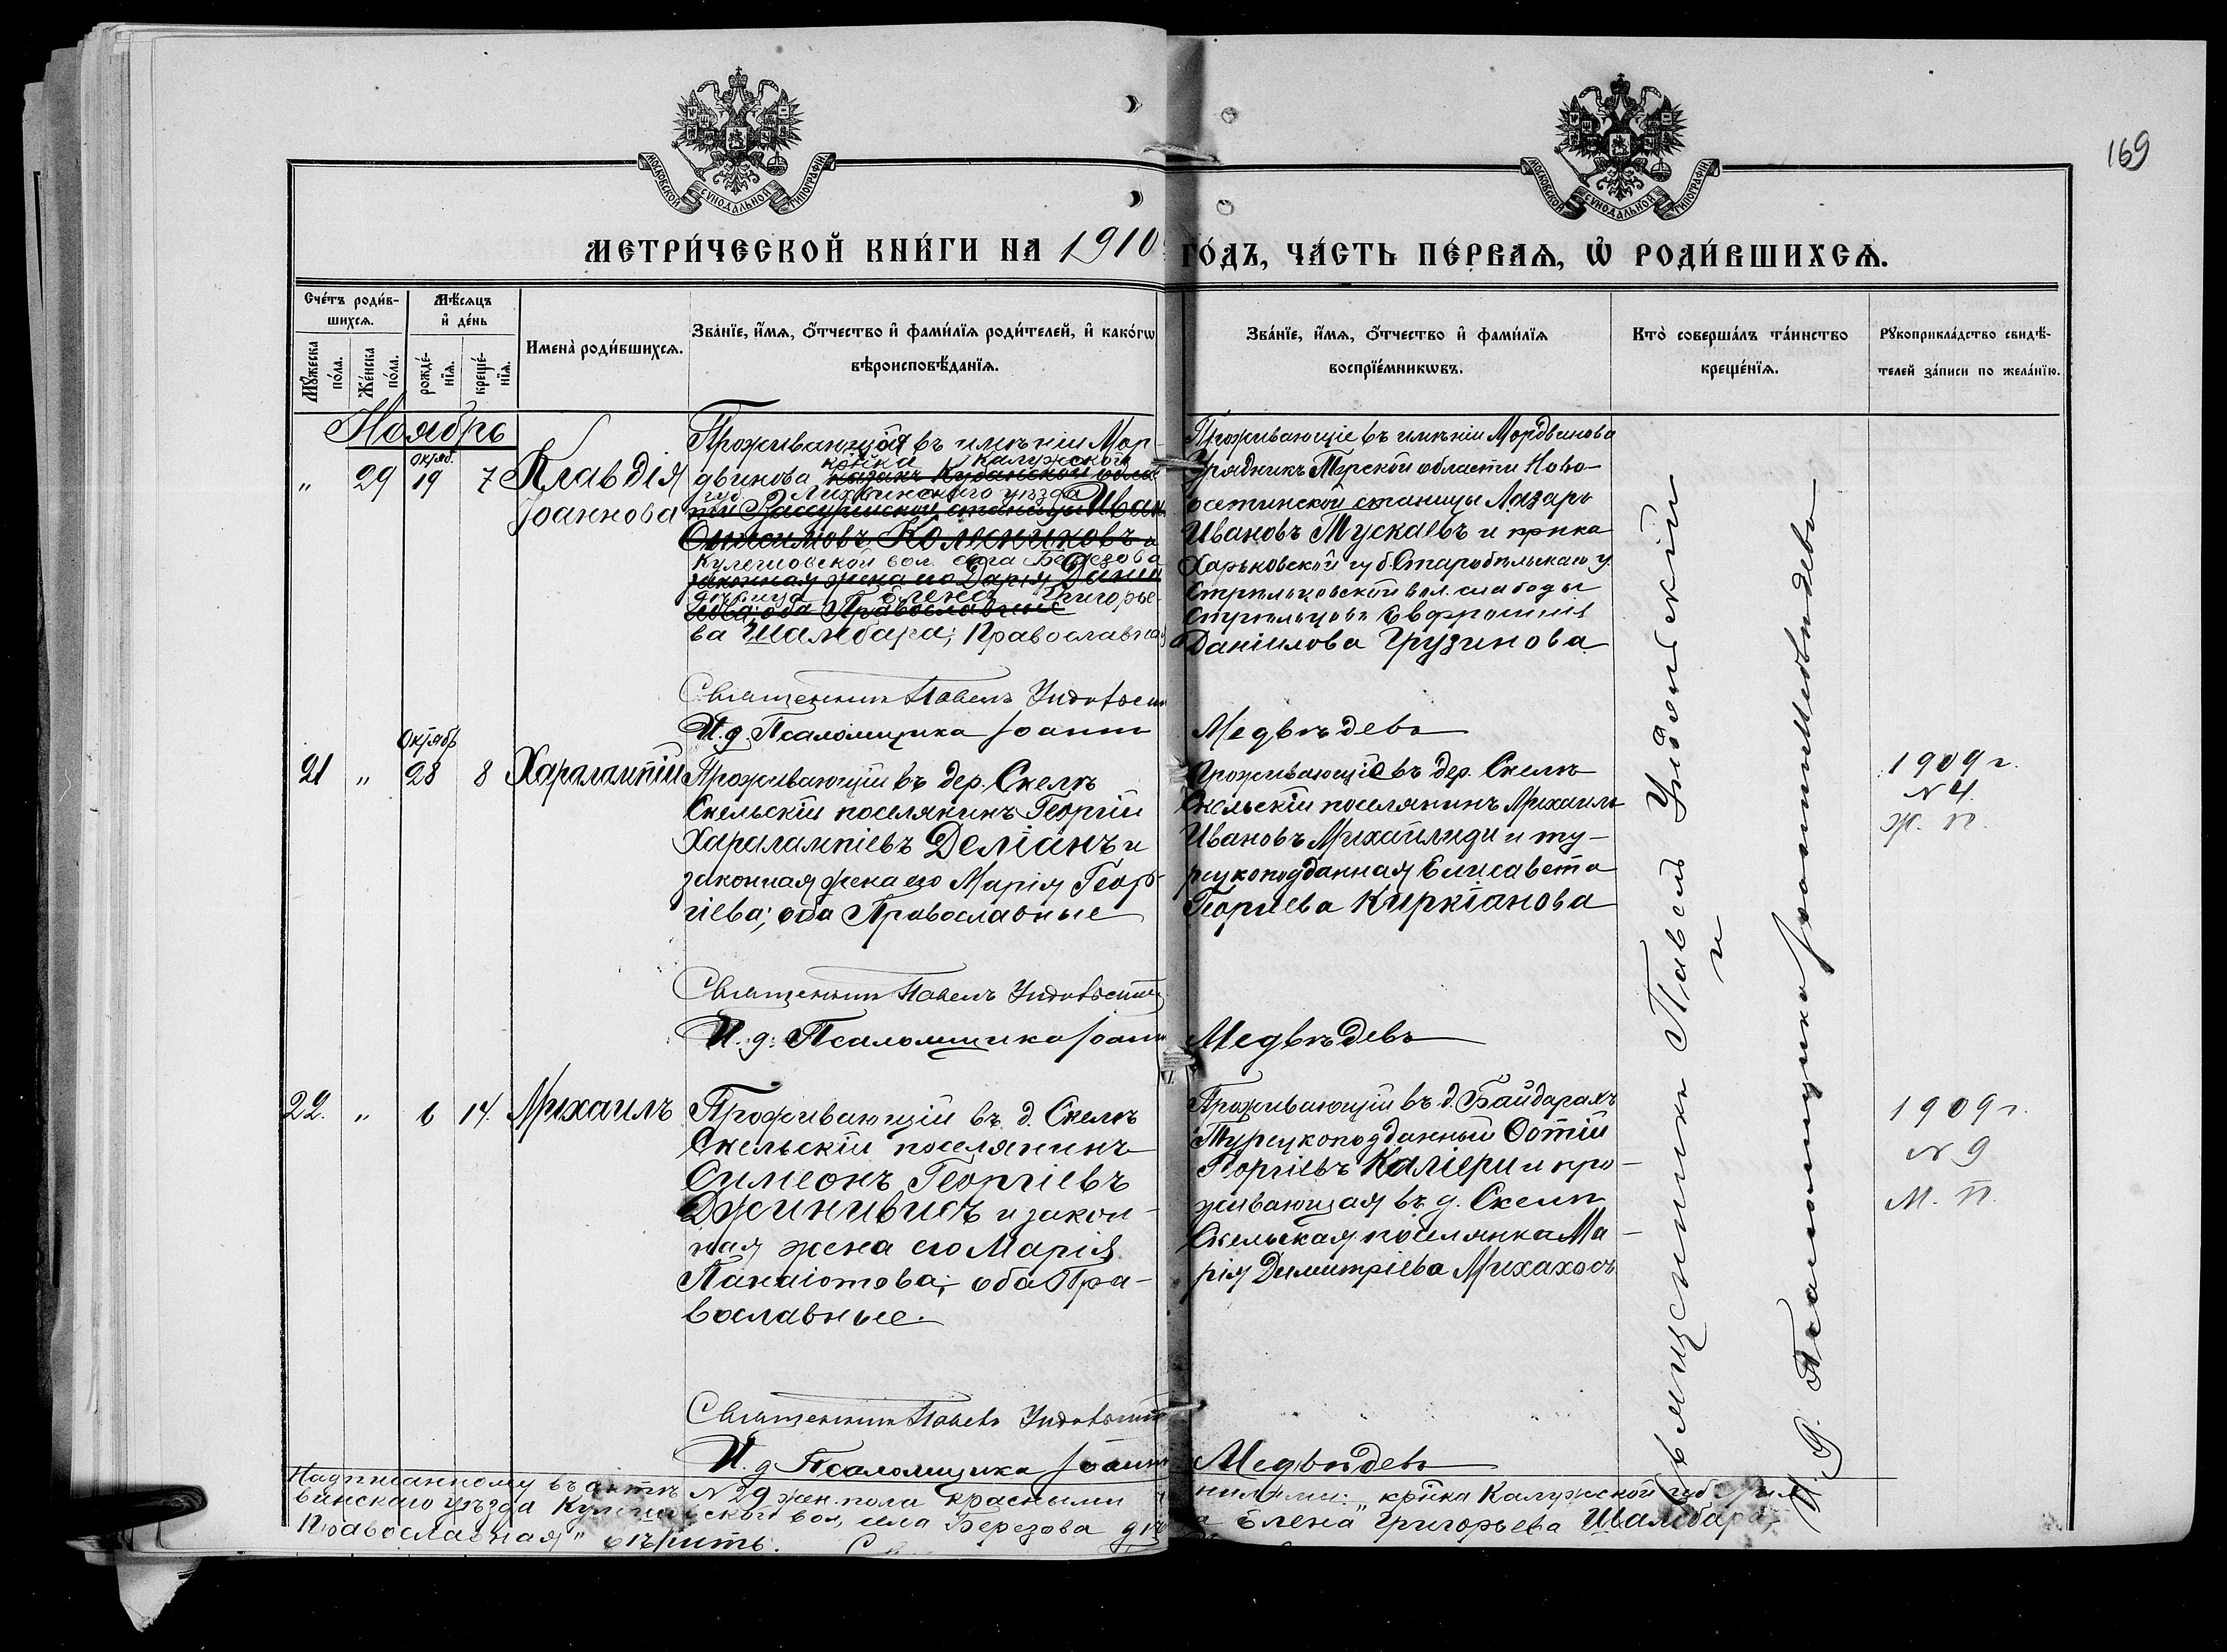 169
МОСКОВСКОЙ СѴНОДАЛЬНОЙ ТИПОГРАФІИ
МОСКОВСКОЙ СѴНОДАЛЬНОЙ ТИПОГРАФІИ
МЕТРИ́ЧЕСКОЙ КНИ́ГИ НА 1910 ГО́ДЪ, ЧА́СТЬ ПЕ́РВАѦ, Ѡ҆ РОДИ́ВШИХСѦ.
Счéтъ роди́в-
шихсѧ.
Мꙋ́жеска по́ла.
Же́нска по́ла.
Мѣ́сѧцъ
и҆ де́нь
рожде́-
нїѧ.
креще́-
нїѧ.
Имена̀ роди́вшихсѧ.
Зва́нїе, и҆́мѧ, ѻ҆́тчество и҆ фами́лїѧ роди́телей, и҆ како́гѡ
вѣроисповѣ́данїѧ.
Зва́нїе, и҆́мѧ, ѻ҆́тчество и҆ фами́лїѧ
воспрїе́мникѡвъ.
Кто̀ соверша́лъ та́инство
креще́нїѧ.
Рꙋкоприкла́дство свидѣ́-
телей за́писи по жела́нїю.
Ноябрь
" 29 октяб. 19 7 Клавдія
Іоаннова
Проживающая въ имѣніи Мор-
двинова
крйка Калужской
казакъ Кубанской обла-
губ. Лихвинскаго уѣзда
станицы Иван
Онисимовъ Колесниковъ и
Кулешовской вол. села Березова
законная жена его Дарія Дани
дѣвица Елена Григорье-
лова; оба Православные
ва Шамбара; Православная
Проживающіе въ имѣніи Мордвинова
Урядникъ Терской области Ново-
осетинской станицы Лазарь
Ивановъ Тускаевъ и крйка
Харьковской губ. Старобѣльскаго у.
Стрѣльцовской вол. слабоды
Стрѣльцовки Евфросинія
Даніилова Грузинова
Священникъ Павелъ Индовскій
И. д. Псаломщика Іоаннъ Медвѣдевъ
21 " Октябр 28 8 Харалампій
Проживающій въ дер. Скелѣ
Скельскій поселянинъ Георгій
Харалампіевъ Деміанъ и
законная жена его Марія Геор-
гіева; оба Православные
Проживающіе въ дер. Скелѣ
Скельскій поселянинъ Михаилъ
Ивановъ Михайлиди и ту-
рецкоподданная Елисавета
Георгіева Киркіанова
1909 г.
N 4.
Ж. п.
Священникъ Павелъ Индовскій
И. д. Псаломщика Іоаннъ Медвѣдевъ
22. " 6 14. Михаилъ
Проживающій въ д. Скелѣ
Скельскій поселянинъ
Симеонъ Георгіевъ
Джинивизъ и закон-
ная жена его Марія
Панаіотова; оба Пра-
вославные.
Проживающій въ д. Байдарахъ
Турецкоподданный Фотій
Георгіевъ Каліери и про-
живающая въ д. Скели
Скельская поселянка Ма-
рія Димитріева Михахосъ
1909 г.
N 9
М. п.
Священникъ Павелъ Индовскій
И. д. Псаломщика Іоаннъ Медвѣдевъ
Священникъ Павелъ Индовскій
и
И. д. Псаломщика Іоаннъ Медвѣдевъ
Надписанному въ актѣ N 29 жен. пола красными чернилами: „крйка Калужской губ. Лих
винскаго уѣзда Кулешовской вол. села Березова дѣвица Елена Григорьева Шамбара,
Православная" вѣрить.